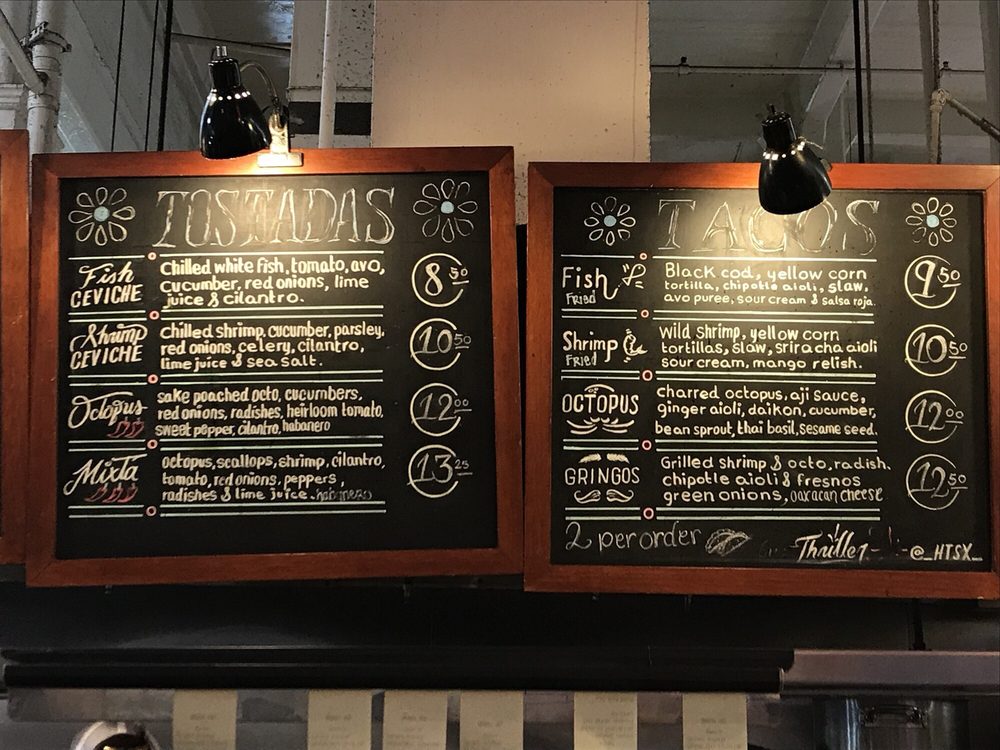 TOSTADAS
Fish CEVICHE
Chilled white fish, tomato, avo,
cucumber, red onions, lime
juice & cilantro.
8 50
Shrimp CEVICHE
Chilled shrimp, cucumber, parsley,
red onions, celery, cilantro,
lime juice & sea salt.
10 50
Octopus
sake poached octo, cucumbers,
red onions, radishes, heirloom tomato,
sweet pepper, cilantro, habanero
12 00
Mixta
octopus, scallops, shrimp, cilantro,
tomato, red onions, peppers,
radishes & lime juice. habanero
13 25
TACOS
Fish
Fried
Black cod, yellow corn
tortilla, chipotle aioli, slaw,
avo puree, sour cream & salsa roja.
9 50
Shrimp
Fried
Wild shrimp, yellow corn
tortillas, slaw, sriracha aioli
sour cream, mango relish.
10 50
OCTOPUS
charred octopus, aji sauce,
ginger aioli, daikon, cucumber,
bean sprout, thai basil, sesame seed.
12 00
GRINGOS
Grilled shrimp & octo, radish.
chipotle aioli & fresnos
green onions, oaxacan cheese
12 50
2 per order
Thriller
@_HTSX_